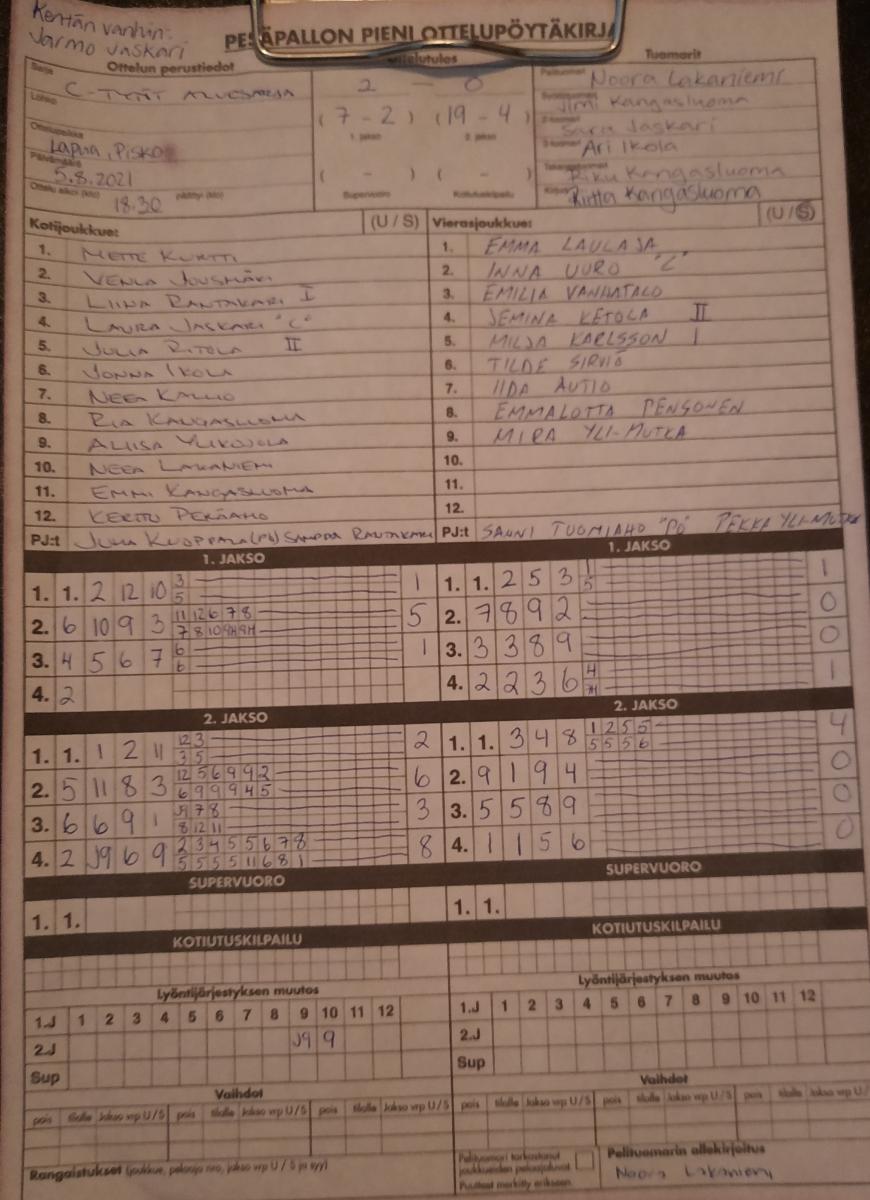 Kentän vanhin:
Jarmo Jaskari
PESÄPALLON PIENI OTTELUPÖYTÄKIRJA
Ottelun perustiedot
Ottelutulos
Tuomarit
Sarja C-TYTÖT ALUESARJA
Lohko
Ottelupaikka
Lapua, Pisko
Päivämäärä
5.8.2021
Ottelu alkoi (klo) 18.30 päättyi (klo)
2 - 0
(7 - 2) (19 - 4)
1. jakso 2. jakso
( - ) ( - )
Supervuoro Kotiutuskilpailu
Pelituomari Noora Lakaniemi
Jimi Kangasluoma
Sara Jaskari
Ari Ikola
Riku Kangasluoma
Kirjuri Riitta Kangasluoma
Kotijoukkue: (U / S)
1. METTE KURTTI
2. VENLA JOUSMÄKI
3. LIINA RANTAKARI I
4. LAURA JASKARI "C"
5. JULIA RITOLA II
6. JONNA IKOLA
7. NEEA KALLIO
8. RIA KANGASLUOMA
9. ALIISA YLIKOJOLA
10. NEEA LAKANIEMI
11. EMMI KANGASLUOMA
12. KERTTU PERÄAHO
PJ:t JUHA KUOPPALA (PV) SAMPPA RANTAKARI
Vierasjoukkue: (U / S)
1. EMMA LAULAJA
2. INNA UURO "C"
3. EMILIA VANHATALO
4. JEMINA KETOLA II
5. MILJA KARLSSON I
6. TILDE SIRVIÖ
7. IIDA AUTIO
8. EMMALOTTA PENSONEN
9. MIRA YLI-MUTKA
10.
11.
12.
PJ:t SANNI TUOMIAHO "PO" PEKKA YLI-MUTKA
1. JAKSO
1. 1. 2 12 10 3 1
5
2. 6 10 9 3 11 12 6 7 8 5
7 8 10 9H 9H
3. 4 5 6 7 6 1
6
4. 2
1. JAKSO
1. 1. 2 5 3 1 1
5
2. 7 8 9 2 0
3. 3 3 8 9 0
4. 2 2 3 6 4 1
7H
2. JAKSO
1. 1. 1 2 11 12 3 2
3 5
2. 5 11 8 3 12 5 6 9 9 2 6
6 9 9 9 4 5
3. 6 6 9 1 J9 7 8 3
8 12 11
4. 2 J9 6 9 2 3 4 5 5 6 7 8 8
5 5 5 5 11 6 8 1
2. JAKSO
1. 1. 3 4 8 1 2 5 5 4
5 5 5 6
2. 9 1 9 4 0
3. 5 5 8 9 0
4. 1 1 5 6 0
SUPERVUORO
1. 1.
SUPERVUORO
1. 1.
KOTIUTUSKILPAILU
KOTIUTUSKILPAILU
Lyöntijärjestyksen muutos
1.J 1 2 3 4 5 6 7 8 9 10 11 12
2.J J9 9
Sup
Lyöntijärjestyksen muutos
1.J 1 2 3 4 5 6 7 8 9 10 11 12
2.J
Sup
Vaihdot
pois tilalle Jakso vrp U / S pois tilalle Jakso vrp U / S pois tilalle Jakso vrp U / S
Vaihdot
pois tilalle Jakso vrp U / S pois tilalle Jakso vrp U / S pois tilalle Jakso vrp U /
Rangaistukset (joukkue, pelaaja nro, jakso vrp U / S ja syy)
Pelituomari tarkastanut
joukkueiden pelaajaluvat
Puutteet merkitty erikseen
Pelituomarin allekirjoitus
Noora Lakaniemi